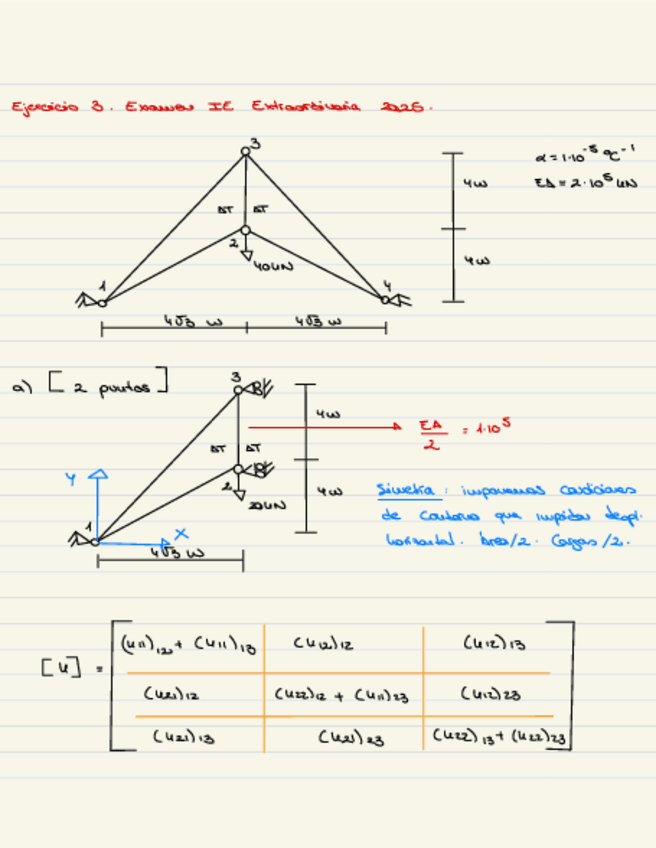 Ejercicio 3. Examen IE Extraordinaria 2025.
3
α = 1·10⁻⁵ ºC⁻¹
4m
EA = 2·10⁵ kN
ΔT ΔT
2
40kN
4m
1
4
4√3 m 4√3 m
a) [2 puntos]
3
4m
EA/2 = 1·10⁵
ΔT ΔT
Y
2
20kN
4m
Simetría: imponemos condiciones
de contorno que impidan despl.
horizontal. Área/2. Cargas/2.
1
X
4√3 m
[K] =
(K11)12 + (K11)13 (K12)12 (K12)13
(K21)12 (K22)12 + (K11)23 (K12)23
(K21)13 (K21)23 (K22)13 + (K22)23